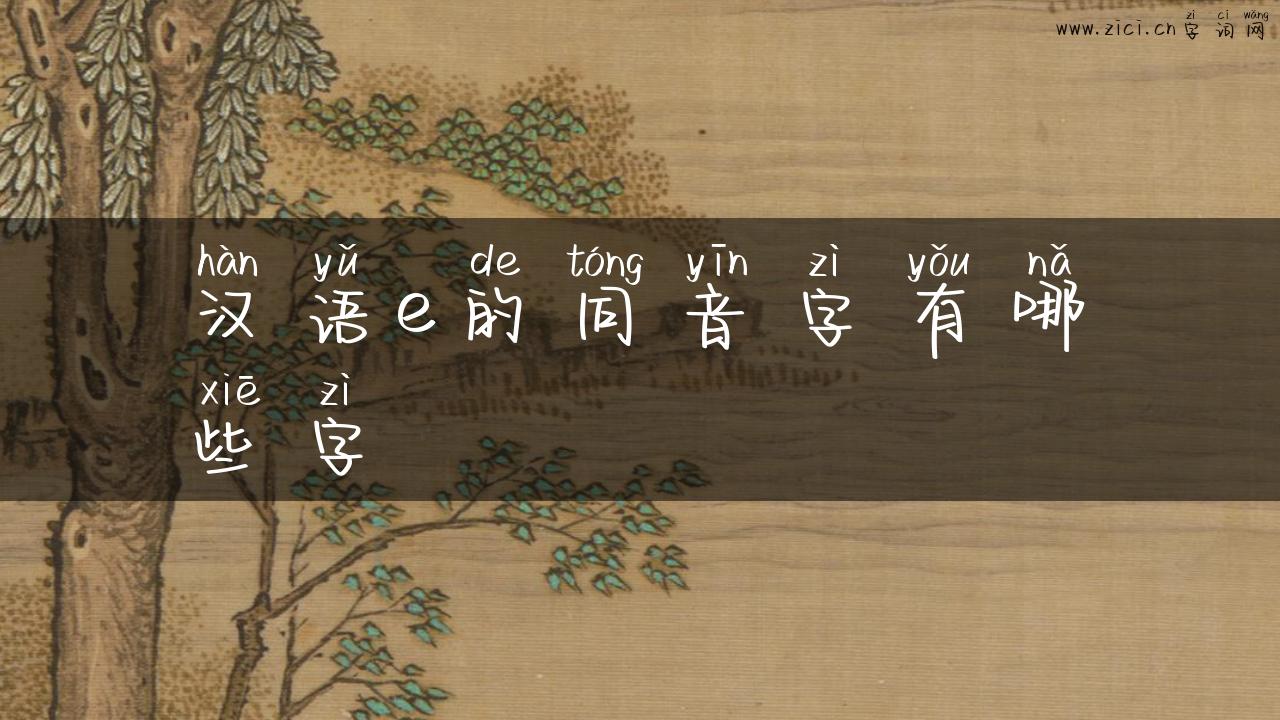 zì cí wǎng
www.zici.cn 字词网
hàn yǔ de tóng yīn zì yǒu nǎ
汉语e的同音字有哪
xiē zì
些字